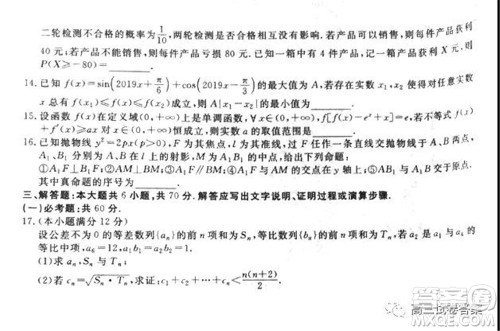 二轮检测不合格的概率为1/10,两轮检测是否合格相互没有影响.若产品可以销售,则每件产品获利
40元;若产品不能销售,则每件产品亏损80元.已知一箱中有4件产品,记一箱产品获利X元,则
P(X≥-80)=________.
14.已知f(x)=sin(2019x+π/6)+cos(2019x-π/3)的最大值为A,若存在实数x₁,x₂使得对任意实数
x总有f(x₁)≤f(x)≤f(x₂)成立,则A|x₁-x₂|的最小值为________.
15.设函数f(x)在定义域(0,+∞)上是单调函数,∀x∈(0,+∞),f[f(x)-eˣ+x]=e,若不等式f(x)
+f′(x)≥ax对x∈(0,+∞)恒成立,则实数a的取值范围是________.
16.已知抛物线y²=2px(p>0),F为其焦点,l为其准线,过F任作一条直线交抛物线于A,B两点,
A₁,B₁分别为A,B在l上的射影,M为A₁B₁的中点,给出下列命题:
①A₁F⊥B₁F;②AM⊥BM;③A₁F∥BM;④A₁F与AM的交点在y轴上;⑤AB₁与A₁B交于原点.
其中真命题的序号为________.
三、解答题:本大题共6小题,共70分.解答应写出文字说明、证明过程或演算步骤.
(一)必考题:共60分.
17.(本小题满分12分)
设公差不为0的等差数列{aₙ}的前n项和为Sₙ,等比数列{bₙ}的前n项和为Tₙ,若a₂是a₁与a₄的
等比中项,a₆=12,a₁b₁=a₂b₂=1.
(1)求aₙ,Sₙ与Tₙ;
(2)若cₙ=√(Sₙ·Tₙ),求证:c₁+c₂+⋯+cₙ<n(n+2)/2.
高三试卷答案